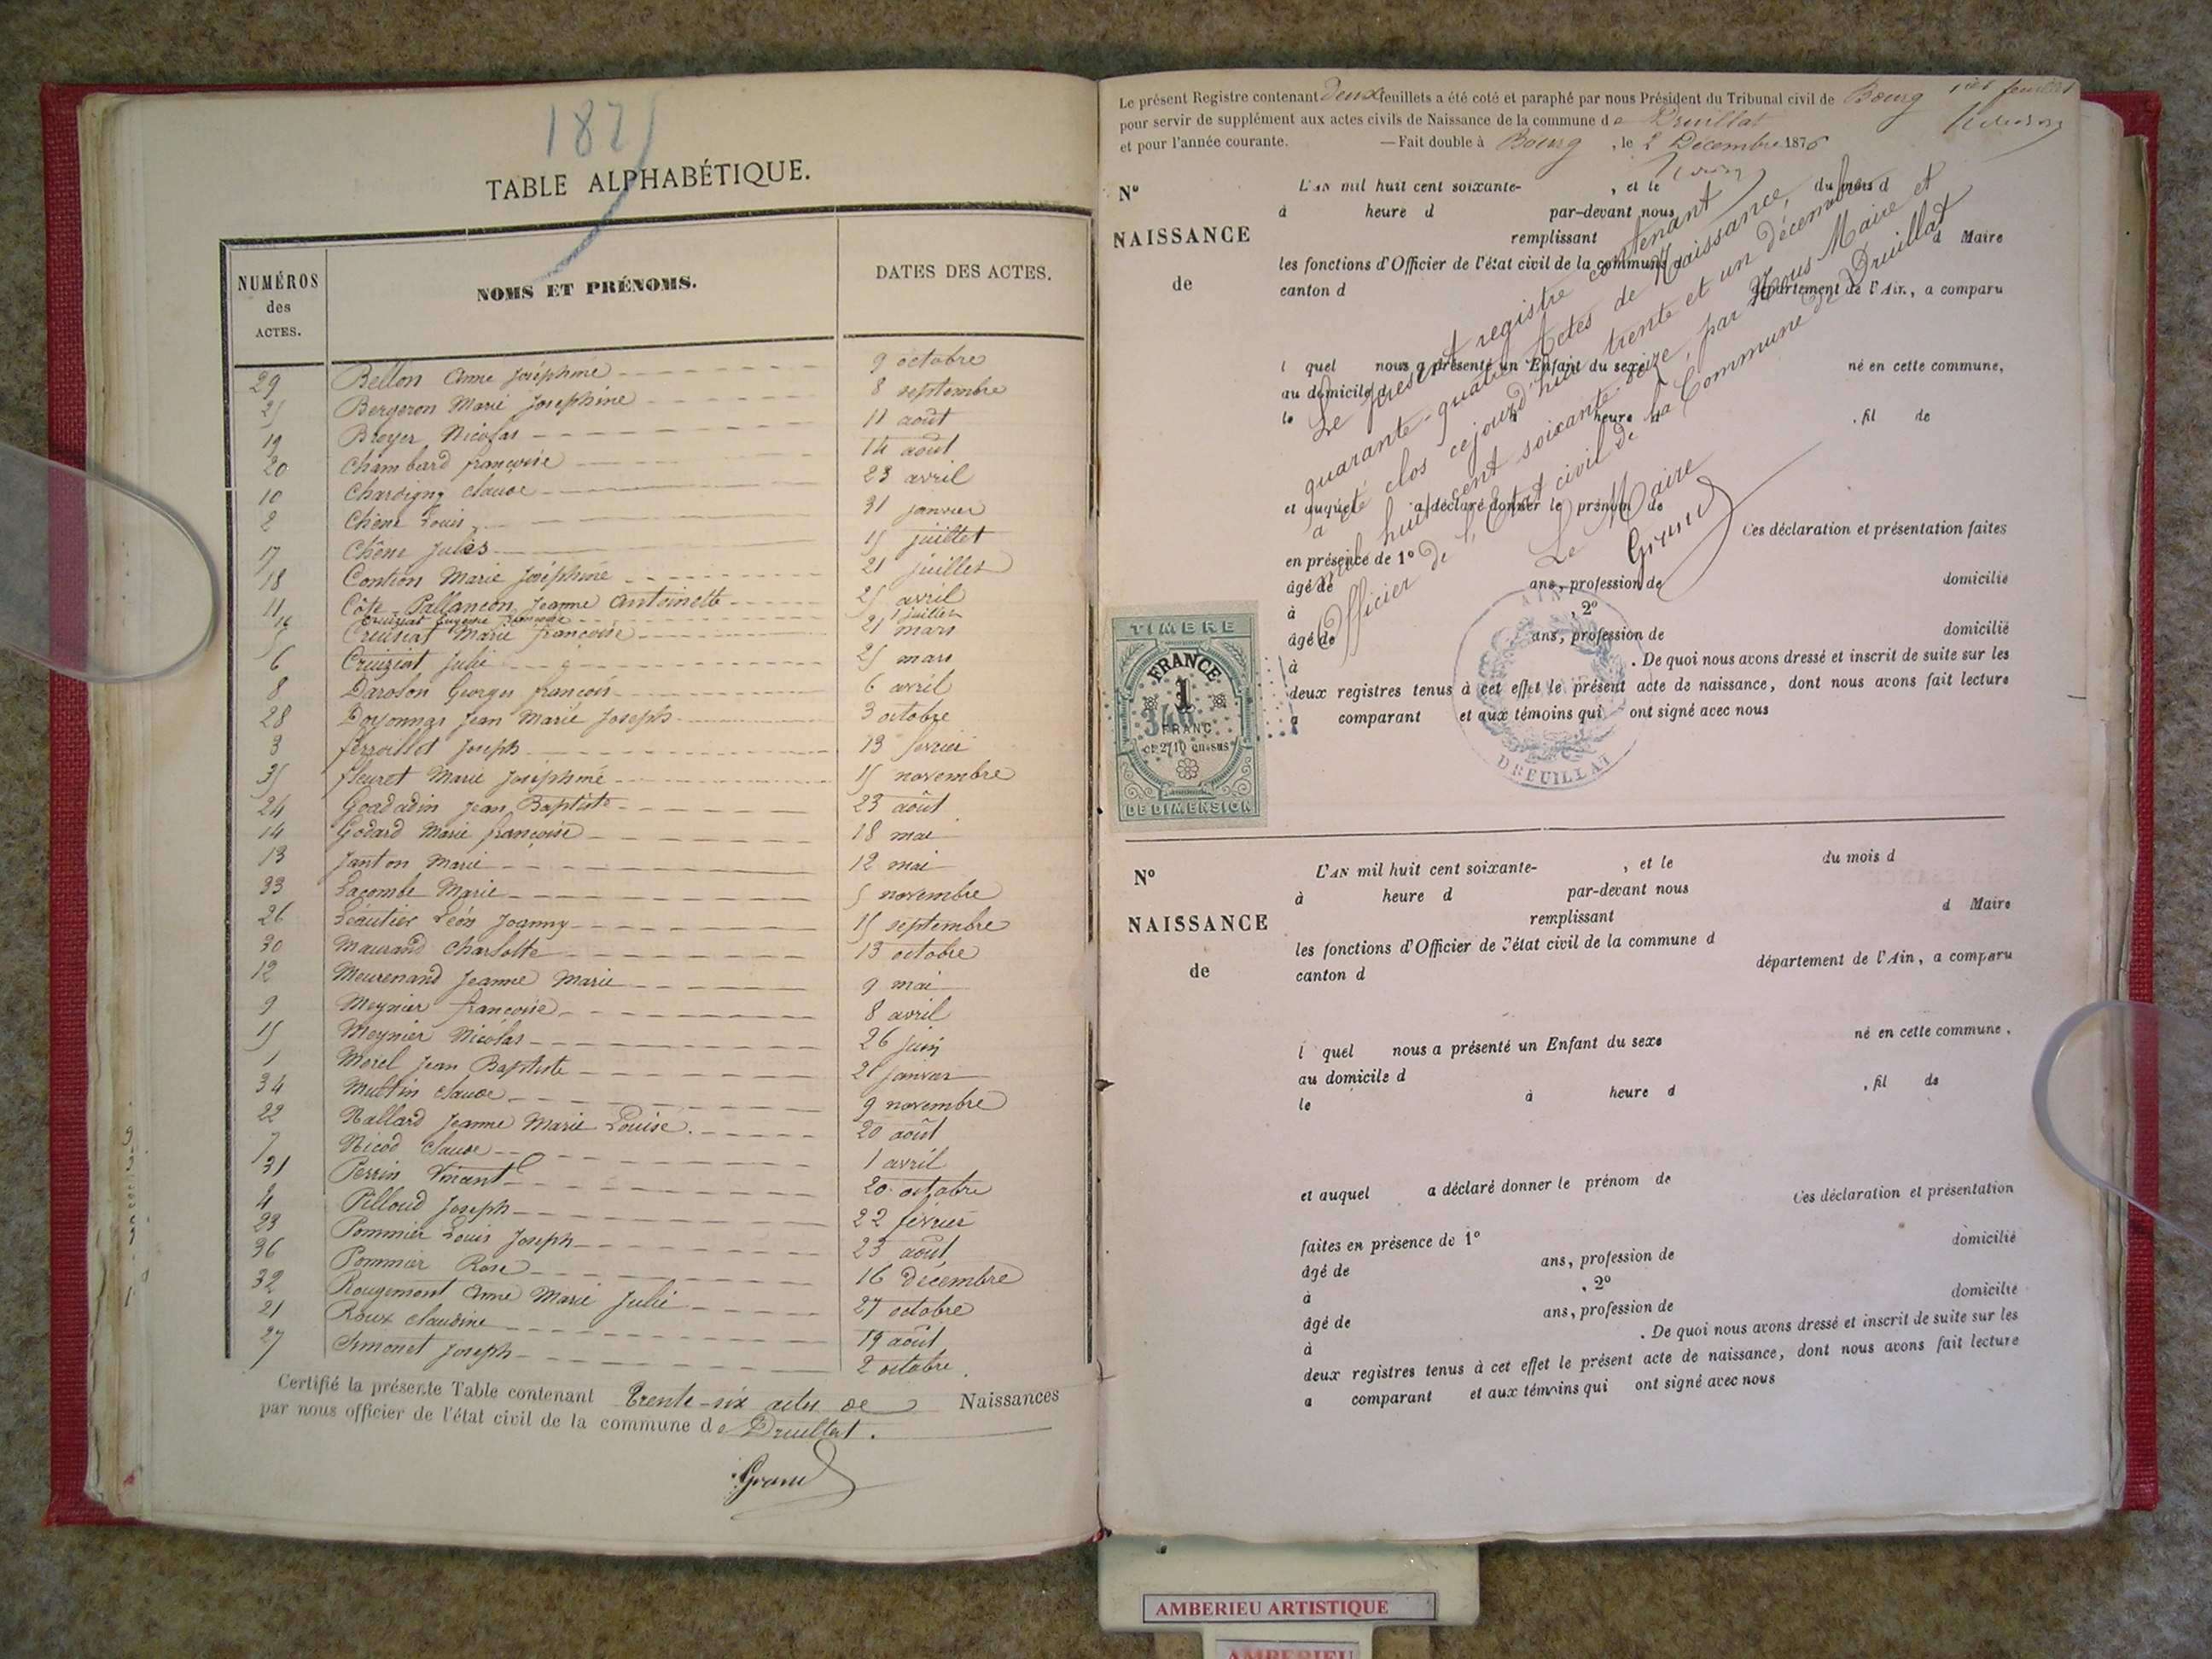 1875
TABLE ALPHABÉTIQUE.
NUMÉROS des ACTES. NOMS ET PRÉNOMS. DATES DES ACTES.
29 Bellon Anne Joséphine 9 octobre
25 Bergeron Marie Josephine 8 septembre
19 Breyer Nicolas 11 août
20 Chambard françoise 14 août
10 Chardigny claude 23 avril
2 Chêne Louis 31 janvier
17 Chêne Jules 15 juillet
18 Contion Marie Joséphine 21 juillet
11 Côte-Pallancon Jeanne Antoinette 25 avril
16 Cruiziat françoise 1 juillet
5 Cruiziat Marie françoise 21 mars
6 Cruiziat Julie 25 mars
8 Darodon Georges françois 6 avril
28 Doyonnas Jean Marie Joseph 3 octobre
3 ferroillot Joseph 13 fevrier
35 fleuret Marie Joséphine 15 novembre
24 Goadadin Jean Baptiste 23 août
14 Godard Marie françoise 18 mai
13 Janton Marie 12 mai
33 Lacombe Marie 5 novembre
26 Leautier Léon Joanny 15 septembre
30 Maurand Charlotte 13 octobre
12 Meurenand Jeanne Marie 9 mai
9 Meynier françoise 8 avril
15 Meynier Nicolas 26 juin
1 Morel Jean Baptiste 21 janvier
34 Muttin claude 9 novembre
22 Nallard Jeanne Marie Louise 20 août
7 Nicod Claude 1 avril
31 Perrin Vincent 20 octobre
4 Pilloud Joseph 22 février
23 Pommier Louis Joseph 23 août
36 Pommier Rose 16 décembre
32 Rougemont Anne Marie Julie 27 octobre
21 Roux claudine 19 août
27 Simonet Joseph 2 octobre
Certifié la présente Table contenant trente-six actes de Naissances
par nous officier de l'état civil de la commune de Druillat.
Grand
Le présent Registre contenant Deux feuillets a été coté et paraphé par nous Président du Tribunal civil de Bourg
pour servir de supplément aux actes civils de Naissance de la commune de Druillat
et pour l'année courante. —Fait double à Bourg, le 2 Décembre 1876
1er feuillet
N°
NAISSANCE
de
L'AN mil huit cent soixante- , et le du mois d
à heure d par-devant nous
remplissant d Maire
les fonctions d'Officier de l'état civil de la commune d
canton d département de l'Ain, a comparu
l quel nous a présenté un Enfant du sexe né en cette commune,
au domicile d
le à heure d , fil de
et auquel a déclaré donner le prénom de
Ces déclaration et présentation faites
en présence de 1°
âgé de ans, profession de domicilié
à , 2°
âgé de ans, profession de domicilié
à . De quoi nous avons dressé et inscrit de suite sur les
deux registres tenus à cet effet le présent acte de naissance, dont nous avons fait lecture
a comparant et aux témoins qui ont signé avec nous
Le présent registre contenant
quarante-quatre Actes de Naissance,
a été clos cejourd'hui trente et un décembre
mil huit cent soixante-seize, par Nous Maire et
Officier de l'Etat civil de la Commune de Druillat
Le Maire
Grand
TIMBRE
FRANCE
1
346
FRANC
et 2/10 en sus
DE DIMENSION
AIN
DREUILLAT
N°
NAISSANCE
de
L'AN mil huit cent soixante- , et le du mois d
à heure d par-devant nous
remplissant d Maire
les fonctions d'Officier de l'état civil de la commune d
canton d département de l'Ain, a comparu
l quel nous a présenté un Enfant du sexe né en cette commune,
au domicile d
le à heure d , fil de
et auquel a déclaré donner le prénom de
Ces déclaration et présentation
faites en présence de 1° domicilié
âgé de ans, profession de
à , 2° domicilié
âgé de ans, profession de
à . De quoi nous avons dressé et inscrit de suite sur les
deux registres tenus à cet effet le présent acte de naissance, dont nous avons fait lecture
a comparant et aux témoins qui ont signé avec nous
AMBERIEU ARTISTIQUE
AMBERIEU